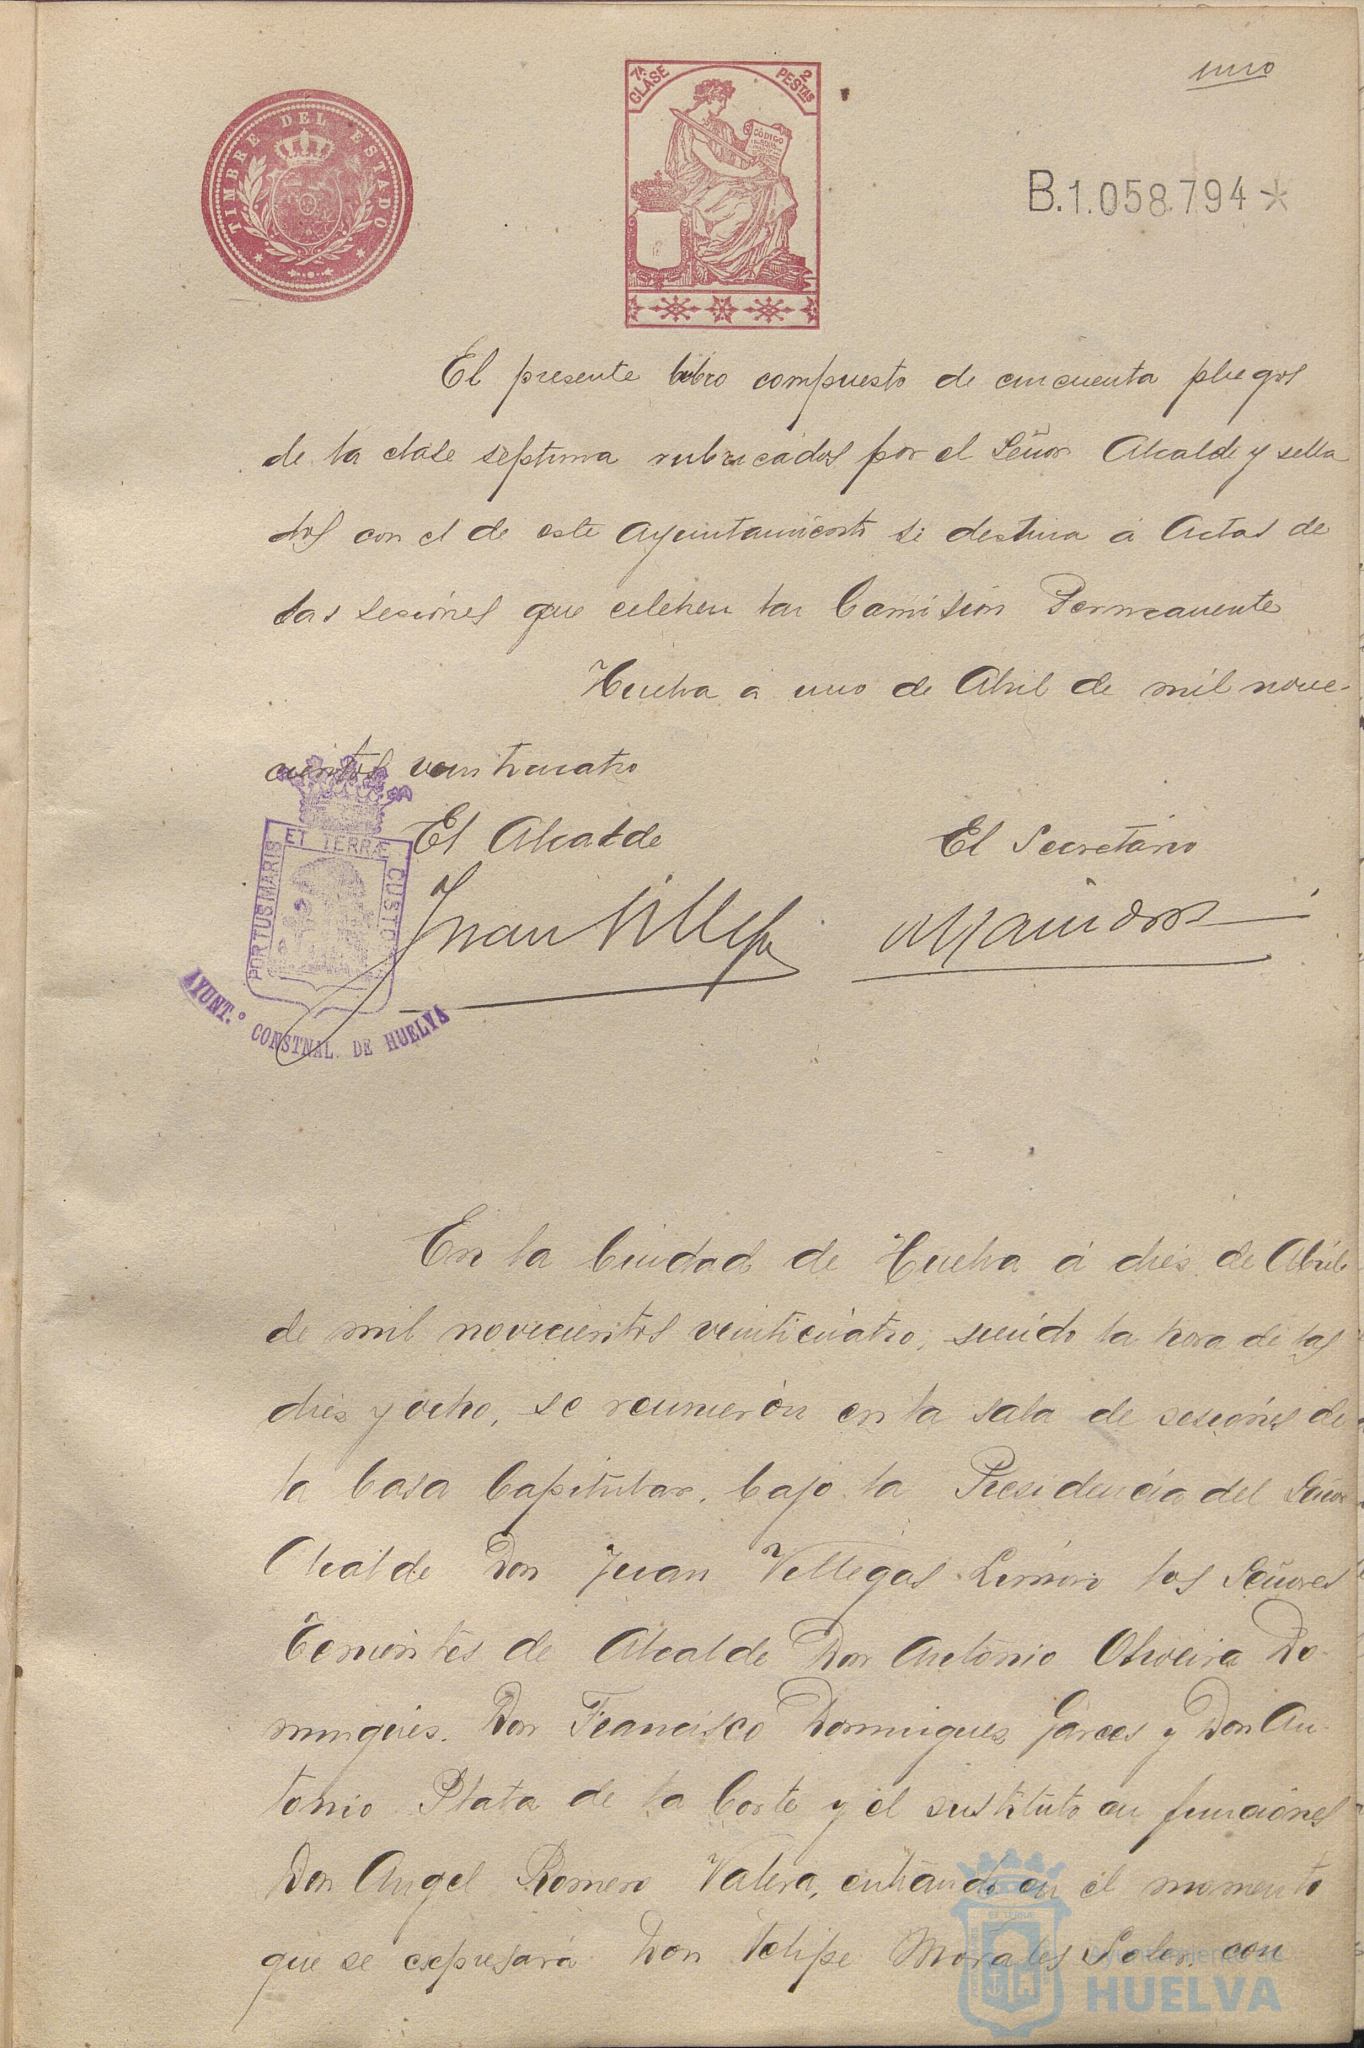 uno
TIMBRE DEL ESTADO
7ª CLASE
2 PESTAS
CÓDIGO
B.1.058.794*
El presente libro compuesto de cincuenta pliegos
de la clase septima rubricados por el Señor Alcalde y sella
dos con el de este Ayuntamiento se destina á Actas de
las sesiones que celebren la Comision Permanente
Huelva a uno de Abril de mil nove-
cientos veinticuatro
El Alcalde
El Secretario
Juan Villegas
PORTUS MARIS ET TERRÆ CUSTO
AYUNT.º CONSTNAL. DE HUELVA
En la Ciudad de Huelva á dies de Abril
de mil novecientos veinticuatro, siendo la hora de las
dies y ocho, se reunieron en la sala de sesiones de
la Casa Capitular, bajo la Presidencia del Señor
Alcalde Don Juan Villegas Limón los Señores
Tenientes de Alcalde Don Antonio Oliveira Do-
mingues. Don Francisco Dominguez Garces y Don An-
tonio Plata de la Corte y el sustituto en funciones
Don Angel Romero Valera, entrando en el momento
que se expresará Don Felipe Morales Soler, con
Ayuntamiento de
HUELVA